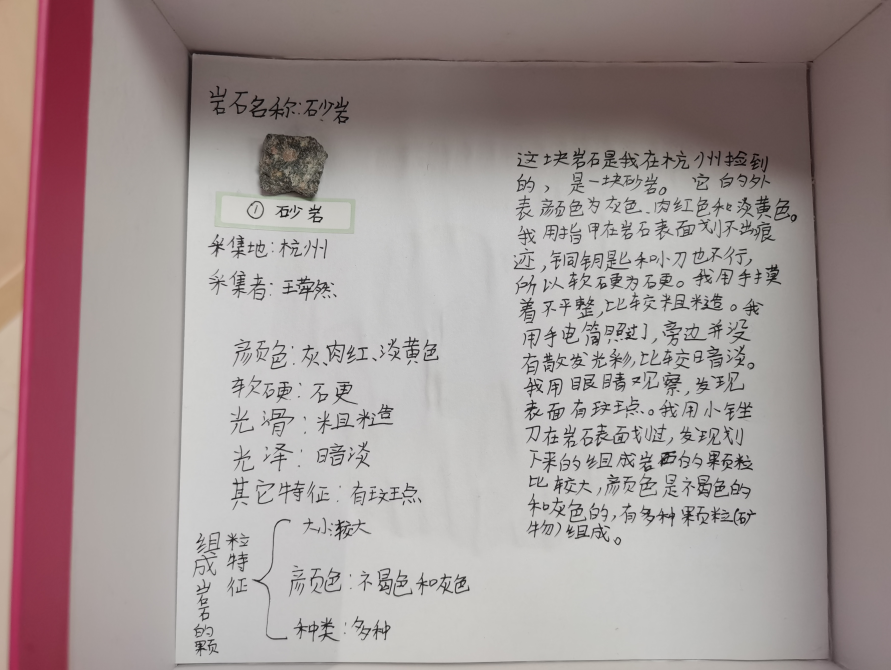 岩石名称:砂岩
① 砂岩
采集地:杭州
采集者:王萍然
颜色:灰、肉红、淡黄色
软硬:硬
光滑:粗糙
光泽:暗淡
其它特征:有斑点
组成岩石的颗粒特征
大小:较大
颜色:褐色和灰色
种类:多种
这块岩石是我在杭州捡到
的,是一块砂岩。它的外
表颜色为灰色、肉红色和淡黄色。
我用指甲在岩石表面划不出痕
迹,铜钥匙和小刀也不行,
所以软硬为硬。我用手摸
着不平整,比较粗糙。我
用手电筒照过了,旁边并没
有散发光彩,比较暗淡。
我用眼睛观察,发现
表面有斑点。我用小锉
刀在岩石表面划过,发现划
下来的组成岩石的颗粒
比较大,颜色是褐色的
和灰色的,有多种颗粒(矿
物)组成。